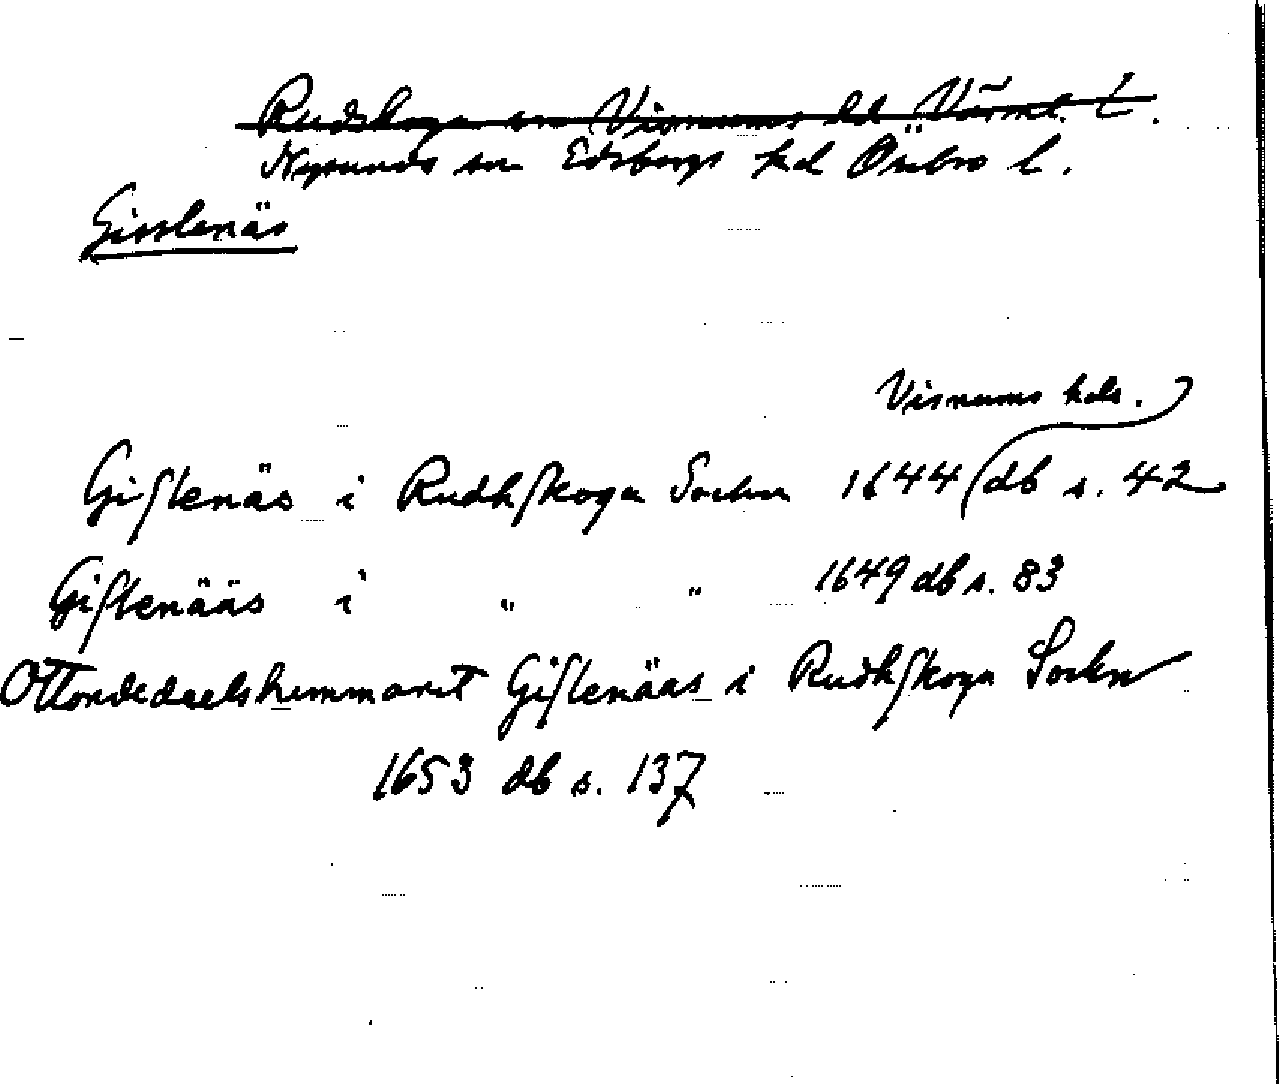 Rudskoga sn Visnums hd Värml. l.
Nysunds sn Edsbergs hd Örebro l.
Gisslenäs
Visnums hds.
Giſlenäs i Rudhſkoga Sockn 1644 db s. 42
Giſlenääs i " " 1649 db s. 83
Ottondedeelshemmanet Giſlenääs i Rudhſkoga Sockn
1653 db s. 137